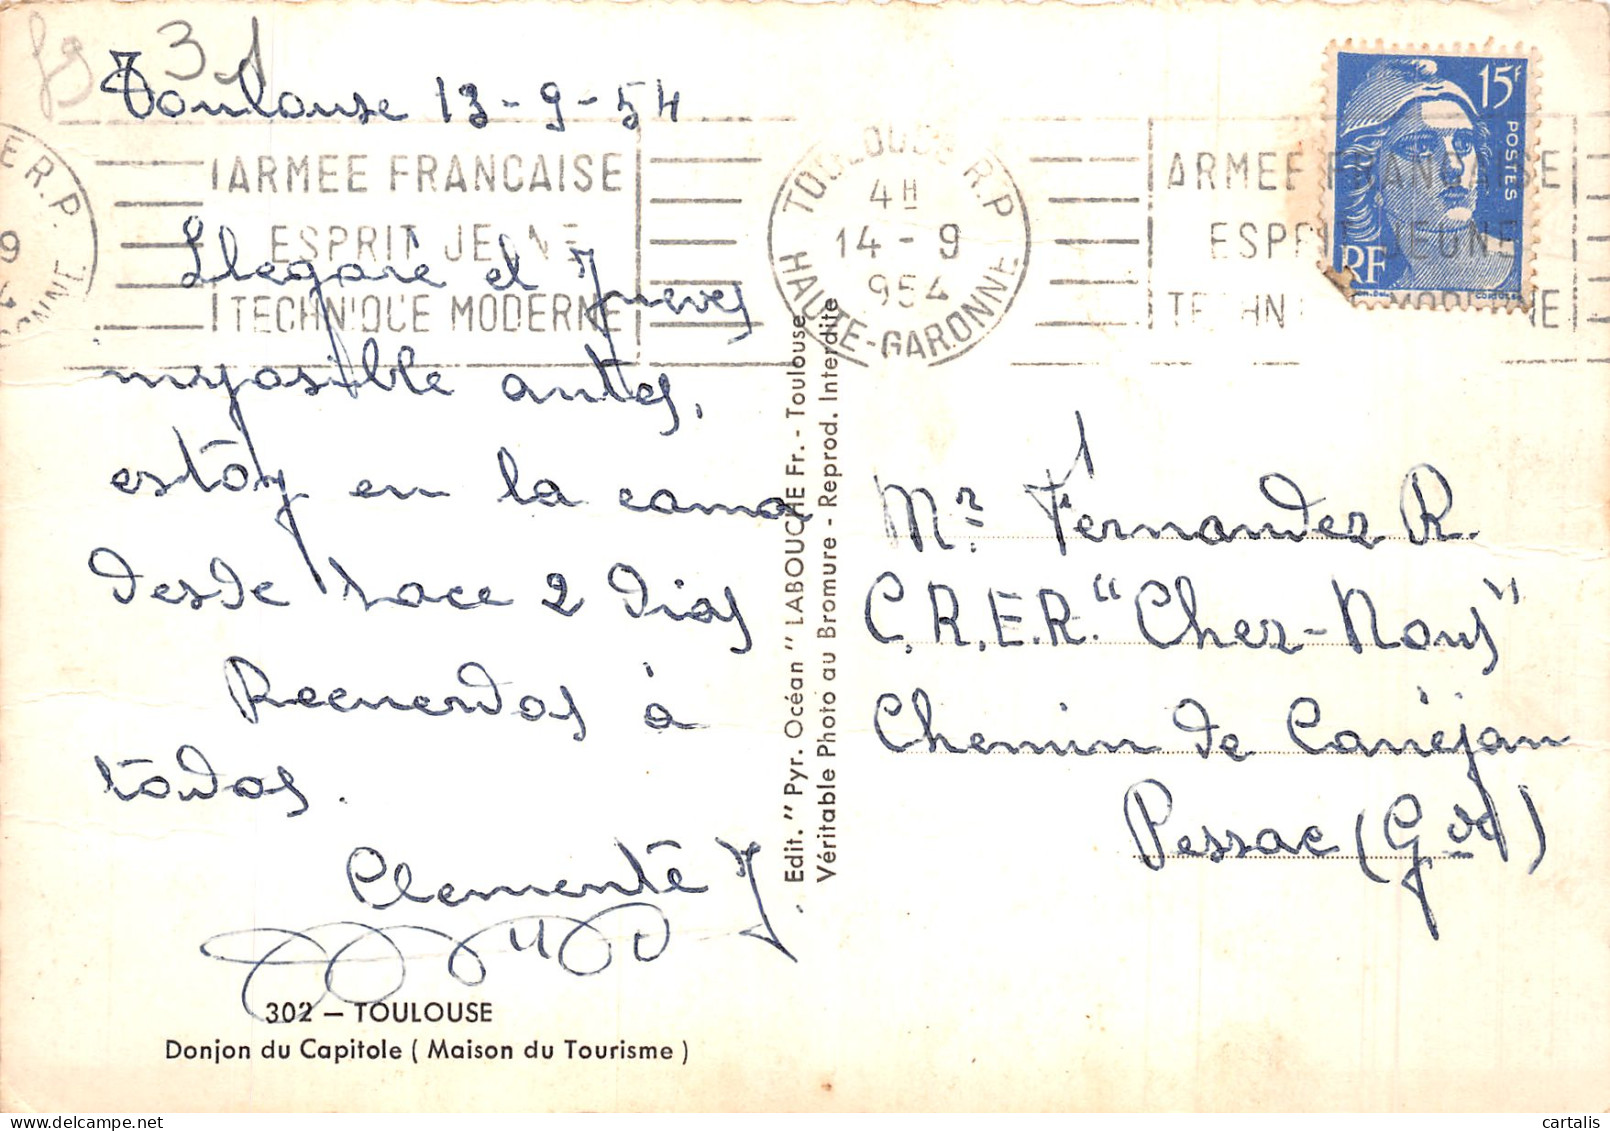 Toulouse 13-9-54
Llegaré el Jueves
imposible antes,
estoy en la cama
desde hace 2 dias
Recuerdos à
todos.
Clemente J.
302 — TOULOUSE
Donjon du Capitole ( Maison du Tourisme )
Edit. " Pyr. Océan " LABOUCHE Fr. - Toulouse
Véritable Photo au Bromure - Reprod. Interdite
E R.P.
ARMEE FRANCAISE
ESPRIT JEUNE
TECHNIQUE MODERNE
TOULOUSE R.P.
4H
14 - 9
954
HAUTE-GARONNE
ARMEE FRANCAISE
ESPRIT JEUNE
TECHNIQUE MODERNE
15F
POSTES
RF
Mr. Fernandez R.
C.R.E.R. "Chez-Nous"
Chemin de Canéjan
Pessac (Gde)
cartalis